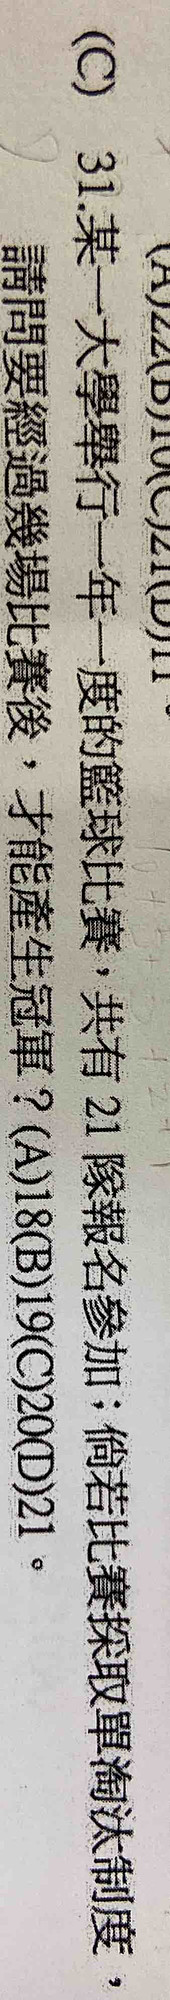 (A)22(B)10(C)21(D)11。
(C) 31.某一大學舉行一年一度的籃球比賽，共有 21 隊報名參加；倘若比賽採取單淘汰制度，
請問要經過幾場比賽後，才能產生冠軍？(A)18(B)19(C)20(D)21。